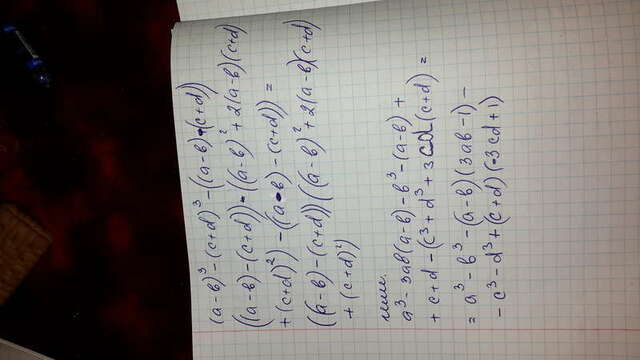 (a-в)³-(c+d)³-((a-в)-(c+d))
((a-в)-(c+d))·((a-в)²+2(a-в)(c+d)
+(c+d)²)-((a-в)-(c+d))=
((a-в)-(c+d))((a-в)²+2(a-в)(c+d)
+(c+d)²)
или.
a³-3aв(a-в)-в³-(a-в)+
+c+d-(c³+d³+3cd(c+d)=
=a³-в³-(a-в)(3aв-1)-
-c³-d³+(c+d)(-3cd+1)